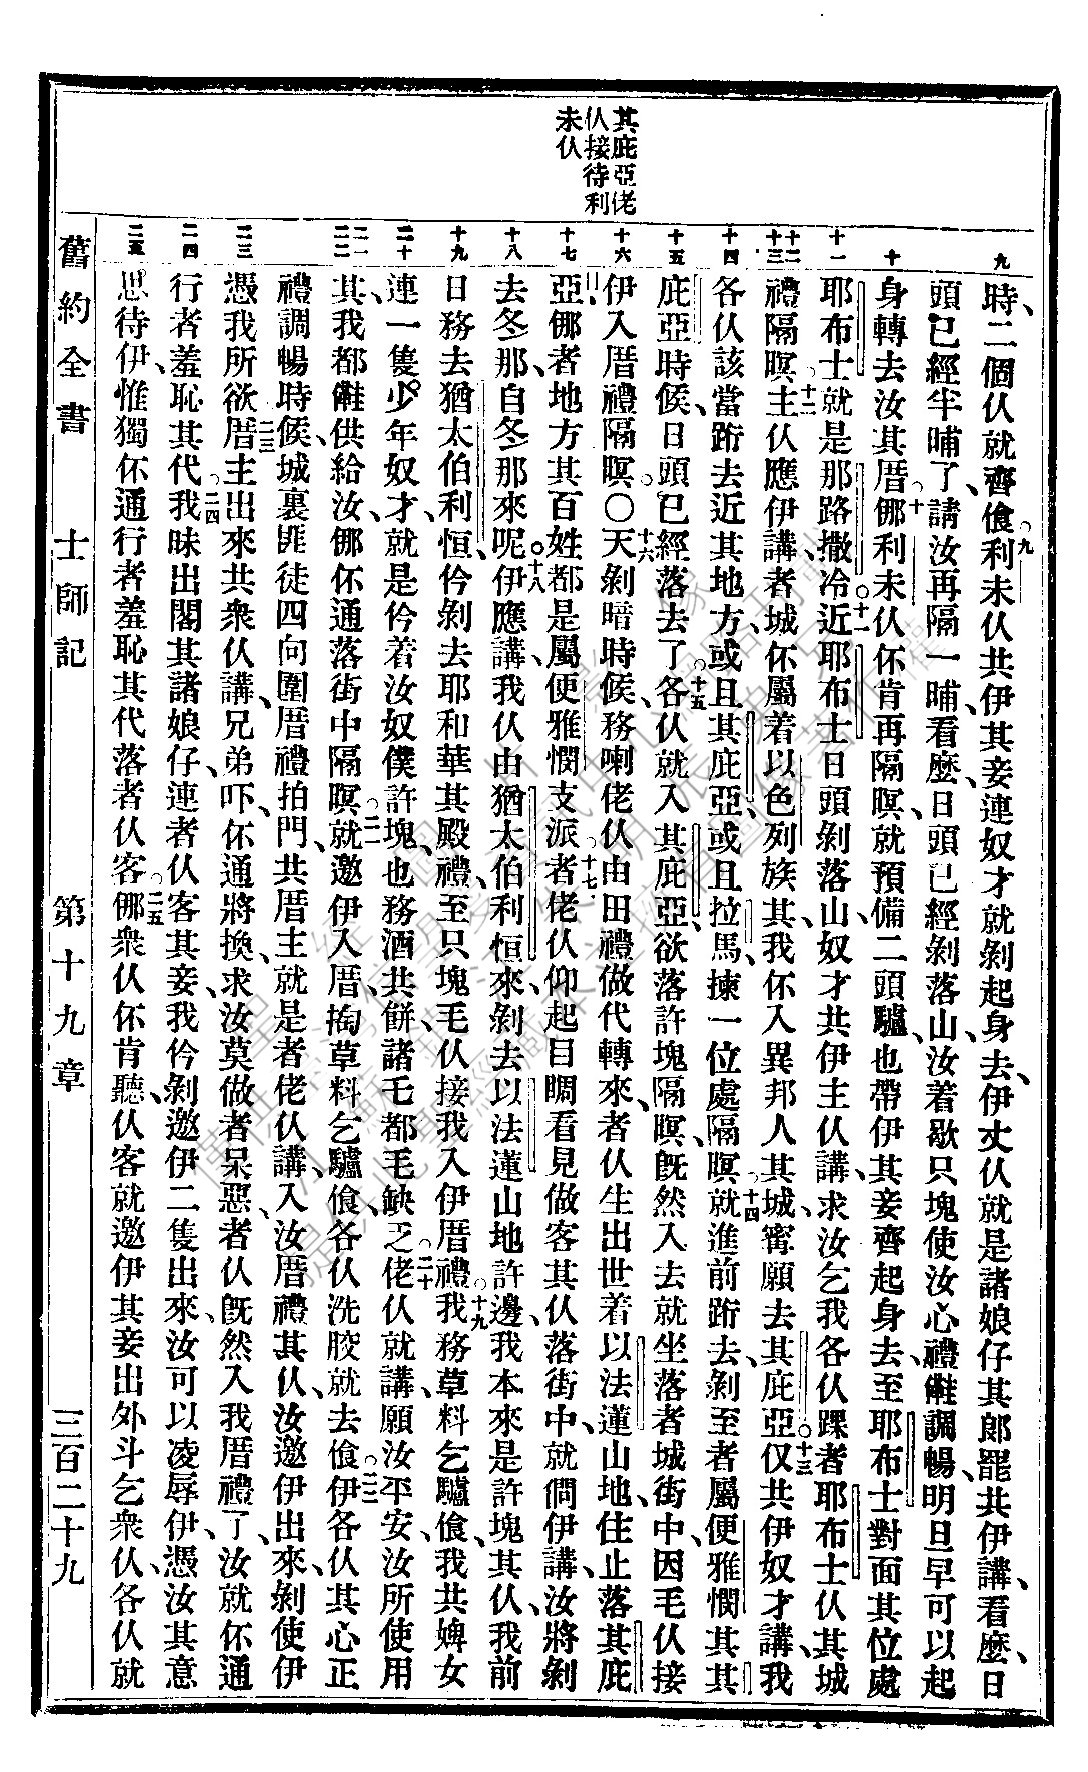 其庇亞佬
仈接待利
未仈
九
十
十一
十二
十三
十四
十五
十六
十七
十八
十九
二十
二一
二二
二三
二四
二五
時、二個仈就齊飡、○九利未仈共伊其妾連奴才就剝起身去、伊丈仈就是諸娘仔其郎罷共伊講、看麼、日
頭已經半晡了、請汝再隔一晡、看麼、日頭已經剝落山、汝着歇只塊使汝心禮雔調暢、明旦早可以起
身轉去汝其厝、○十㑚利未仈伓肯再隔暝、就預備二頭驢、也帶伊其妾齊起身去、至耶布士對面其位處
耶布士就是那路撒冷○十一近耶布士日頭剝落山、奴才共伊主仈講、求汝乞我各仈躒者耶布士仈其城
禮隔暝、○十二主仈應伊講、者城伓屬着以色列族其、我伓入異邦人其城、寗願去其庇亞○十三仅共伊奴才講、我
各仈該當跲去近其地方、或且其庇亞、或且拉馬、揀一位處隔暝、○十四就進前跲去、剝至者屬便雅憫其其
庇亞時候、日頭已經落去了、○十五各仈就入其庇亞、欲落許塊隔暝、旣然入去就坐落者城街中、因毛仈接
伊入厝禮隔暝、○○十六天剝暗時候、務喇佬仈由田禮做代轉來、者仈生出世着以法蓮山地、住止落其庇
亞、㑚者地方其百姓都是屬便雅憫支派、○十七者佬仈仰起目睭看見做客其仈落街中、就僩伊講、汝將剝
去冬那、自冬那來呢、○十八伊應講、我仈由猶太伯利恒來、剝去以法蓮山地許邊、○十九我本來是許塊其仈、我前
日務去猶太伯利恒、仱剝去耶和華其殿禮、至只塊毛仈接我入伊厝禮、我務草料乞驢飡、我共婢女
連一隻少年奴才、就是仱着汝奴僕許塊、也務酒共餅、諸毛都毛缺乏、○二十佬仈就講、願汝平安、汝所使用
其、我都雔供給汝、㑚伓通落街中隔暝、○二一就邀伊入厝、掏草料乞驢飡、各仈洗骹就去飡、○二二伊各仈其心正
禮調暢時候、城裏匪徒四向圍厝禮拍門、共厝主就是者佬仈講、入汝厝禮其仈、汝邀伊出來、剝使伊
憑我所欲、○二三厝主出來共衆仈講、兄弟吓、伓通將換、求汝莫做者呆惡、者仈旣然入我厝禮了、汝就伓通
行者羞恥其代、○二四我昧出閣其諸娘仔、連者仈客其妾、我仱剝邀伊二隻出來、汝可以凌辱伊、憑汝其意
思待伊、惟獨伓通行者羞恥其代落者仈客、○二五㑚衆仈伓肯聽、仈客就邀伊其妾出外斗乞衆仈、各仈就
舊約全書 士師記 第十九章 三百二十九